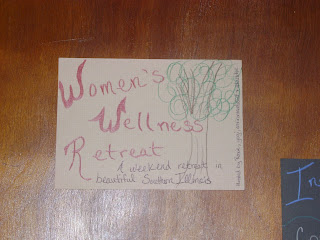 Women's
Wellness
Retreat
A weekend retreat in
beautiful Southern Illinois
In